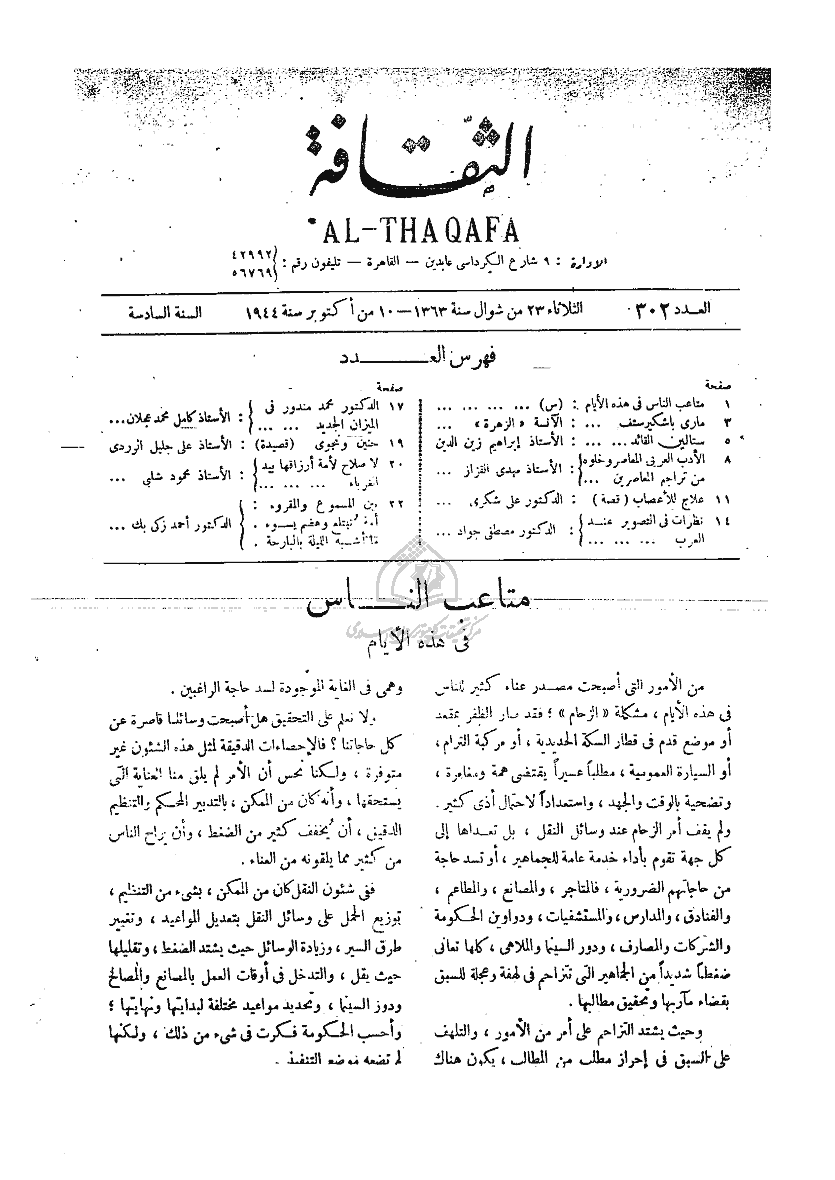 الثقافة
AL-THAQAFA
الإدارة : ٩ شارع الكرداسى عابدين — القاهرة — تليفون رقم : { ٤٢٩٩٢
٥٦٧٦٩
العدد ٣٠٢
الثلاثاء ٢٣ من شوال سنة ١٣٦٣ — ١٠ من أكتوبر سنة ١٩٤٤
السنة السادسة
فهرس العـــــــدد
صفحة
١ متاعب الناس فى هذه الأيام : (س) ... ... ... ...
٣ مارى باشكيرستف ... : الآنسة « الزهرة » ...
٥ ستالين القائد... ... : الأستاذ إبراهيم زين الدين
٨ الأدب العربى المعاصر وخلوه
من تراجم المعاصرين ... } : الأستاذ مهدى القزاز ...
١١ علاج للأعصاب ( قصة ) : الدكتور على شكرى ...
١٤ نظرات فى التصوير عنـد
العرب ... ... ... } : الدكتور مصطفى جواد ...
صفحة
١٧ الدكتور محمد مندور فى
الميزان الجديد ... ... } : الأستاذ كامل محمد عجلان...
١٩ حنين ونجوى (قصيدة) : الأستاذ على جليل الوردى
٢٠ لا صلاح لأمة أرزاقها بيد
الغرباء ... ... ... } : الأستاذ محمود شلبى ...
٢٢ بين المسموع والمقروء :
نبتلع وهضم يسوء .
ما أشبه الليلة بالبارحة . } الدكتور أحمد زكى بك ...
متاعب النـــاس
فى هذه الأيام
من الأمور التى أصبحت مصدر عناء كثير للناس
فى هذه الأيام ، مشكلة « الزحام » ؛ فقد صار الظفر بمقعد
أو موضع قدم فى قطار السكة الحديدية ، أو مركبة الترام ،
أو السيارة العمومية ، مطلباً عسيراً يقتضى همة ومغامرة ،
وتضحية بالوقت والجهد ، واستعداداً لاحتمال أذى كثير .
ولم يقف أمر الزحام عند وسائل النقل ، بل تعداها إلى
كل جهة تقوم بأداء خدمة عامة للجماهير ، أو تسد حاجة
من حاجاتهم الضرورية ، فالمتاجر ، والمصانع ، والمطاعم ،
والفنادق ، والمدارس ، والمستشفيات ، ودواوين الحكومة
والشركات والمصارف ، ودور السينما والملاهى ، كلها تعانى
ضغطاً شديداً من الجماهير التى تتزاحم فى لهفة وعجلة للسبق
بقضاء مآربها وتحقيق مطالبها .
وحيث يشتد التزاحم على أمر من الأمور ، والتلهف
على السبق فى إحراز مطلب من المطالب ، يكون هناك
وهمى فى الغاية الموجودة لسد حاجة الراغبين .
ولا نعلم على التحقيق هل أصبحت وسائلنا قاصرة عن
كل حاجاتنا ؟ فالإحصاءات الدقيقة لمثل هذه الشئون غير
متوفرة ، ولكنا نحس أن الأمر لم يلق منا العناية التى
يستحقها ، وأنه كان من الممكن ، بالتدبير المحكم والتنظيم
الدقيق ، أن يُخفف كثير من الضغط ، وأن يراح الناس
من كثير مما يلقونه من العناء .
ففى شئون النقل كان من الممكن ، بشىء من التنظيم ،
توزيع الحمل على وسائل النقل بتعديل المواعيد ، وتغيير
طرق السير ، وزيادة الوسائل حيث يشتد الضغط ، وتقليلها
حيث يقل ، والتدخل فى أوقات العمل بالمصانع والمصالح
ودور السينما ، وتحديد مواعيد مختلفة لبداياتها ونهاياتها ؛
وأحسب الحكومة فكرت فى شىء من ذلك ، ولكنها
لم تضعه موضع التنفيذ .